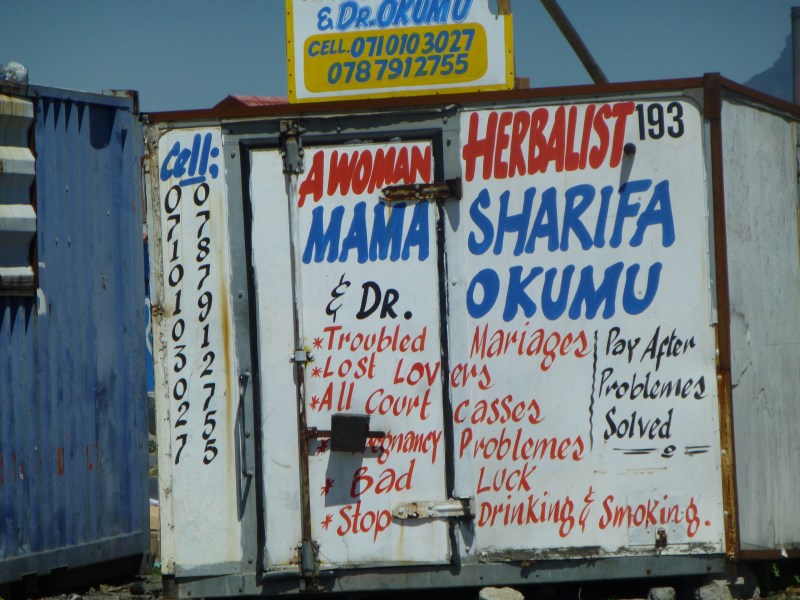 & DR. OKUMU
CELL. 0710103027
0787912755
Cell;
0710103027
0787912755
A WOMAN HERBALIST 193
MAMA SHARIFA
& DR. OKUMU
* Troubled Mariages
* Lost Lovers
* All Court casses
Pregnancy Problemes
* Bad Luck
* Stop Drinking & Smoking.
Pay After
Problemes
Solved